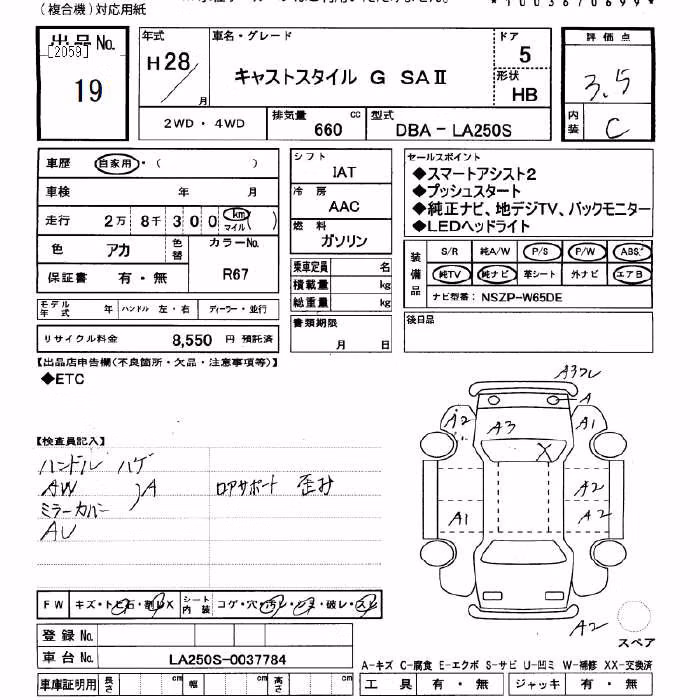 (複合機)対応用紙
*1003670699*
出品No.
[2059]
19
年式
H28/
月
車名・グレード
キャストスタイル G SAⅡ
ドア
5
形状
HB
評価点
3.5
内装
C
2WD・4WD
排気量
660
cc
型式
DBA-LA250S
車歴 自家用・( )
車検 年 月
走行 2万 8千 300 km マイル ( )
色 アカ 色替 カラーNo.
保証書 有・無 R67
モデル年式 年 ハンドル 左・右 ディーラー・並行
リサイクル料金 8,550 円 預託済
シフト
IAT
冷房
AAC
燃料
ガソリン
乗車定員 名
積載量 kg
総重量 kg
書類期限
月 日
セールスポイント
◆スマートアシスト2
◆プッシュスタート
◆純正ナビ、地デジTV、バックモニター
◆LEDヘッドライト
装備品
S/R 純A/W P/S P/W ABS
純TV 純ナビ 革シート 外ナビ エアB
ナビ型番: NSZP-W65DE
後日品
【出品店申告欄(不良箇所・欠品・注意事項等)】
◆ETC
【検査員記入】
ハンドル ハゲ
AW )A ロアサポート 歪み
ミラーカバー
AU
A3フレ
A
A2
A3
A1
X
A2
A1
A2
A2
スペア
FW キズ・トビ石・割レX シート内装 コゲ・穴・汚レ・シミ・破レ・スレ
登録No.
車台No. LA250S-0037784
車庫証明用 長さ cm 幅 cm 高さ cm
A-キズ C-腐食 E-エクボ S-サビ U-凹ミ W-補修 XX-交換済
工具 有・無 ジャッキ 有・無